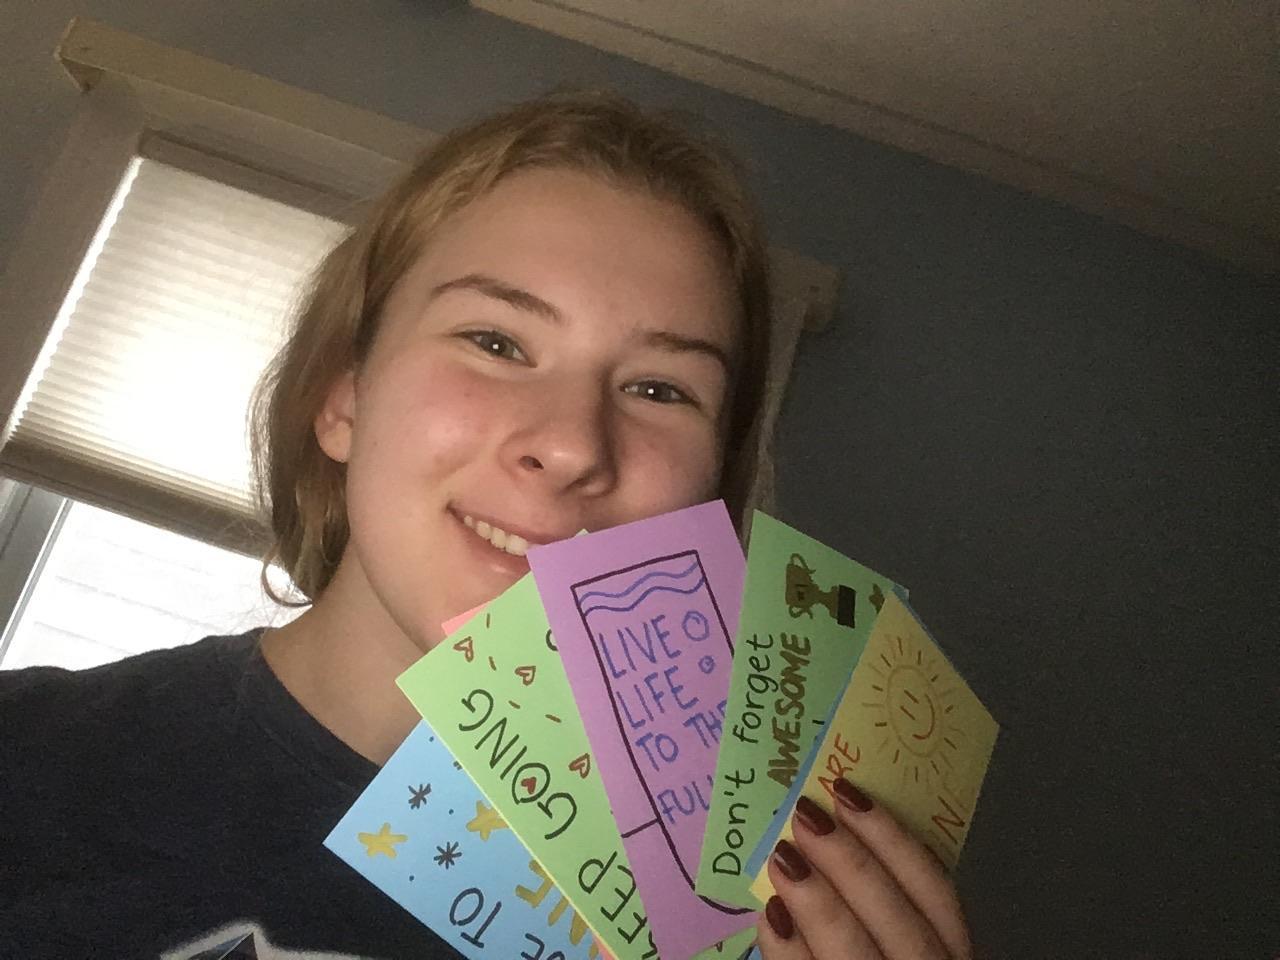 TO
KEEP GOING
LIVE
LIFE
TO THE
FULL
Don't forget
AWESOME
ARE